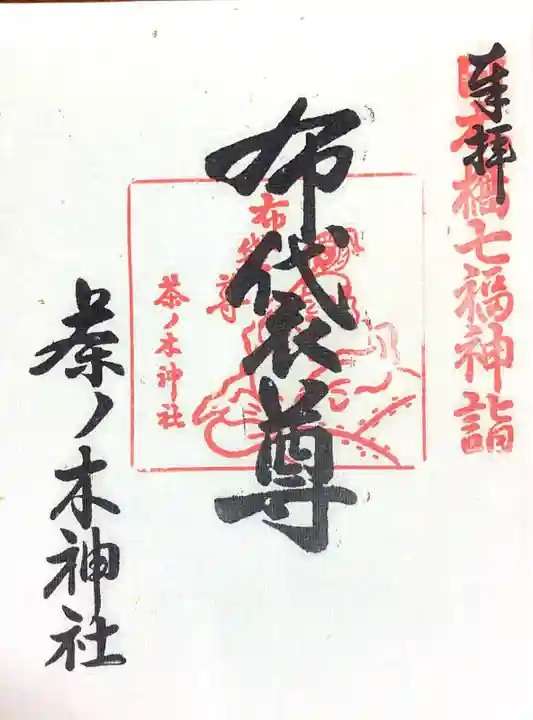 奉拝
日本橋七福神詣
布袋尊
布袋尊
茶ノ木神社
茶ノ木神社